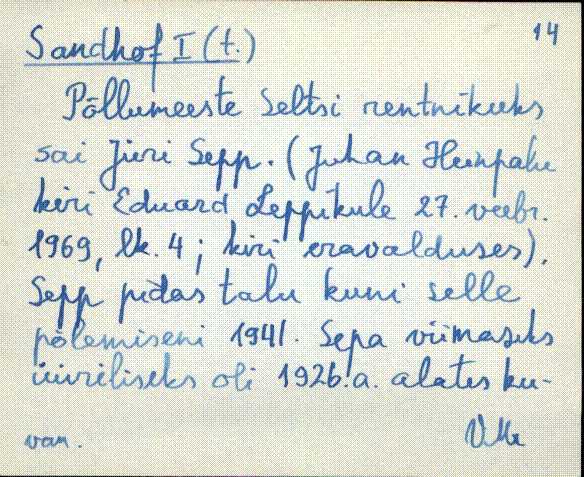 14
Sandhof I (t.)
Põllumeeste Seltsi rentnikuks
sai Jüri Sepp. (Juhan
kiri Eduard Leppikule 27. veebr.
1969, lk. 4; kiri eravalduses).
Sepp pidas talu kuni selle
põlemiseni 1941. Sepa viimaseks
üüriliseks oli 1926.a. alates ku-
van.